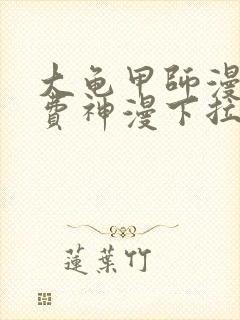 大龟甲師漫
費神漫下拉
蓮葉竹